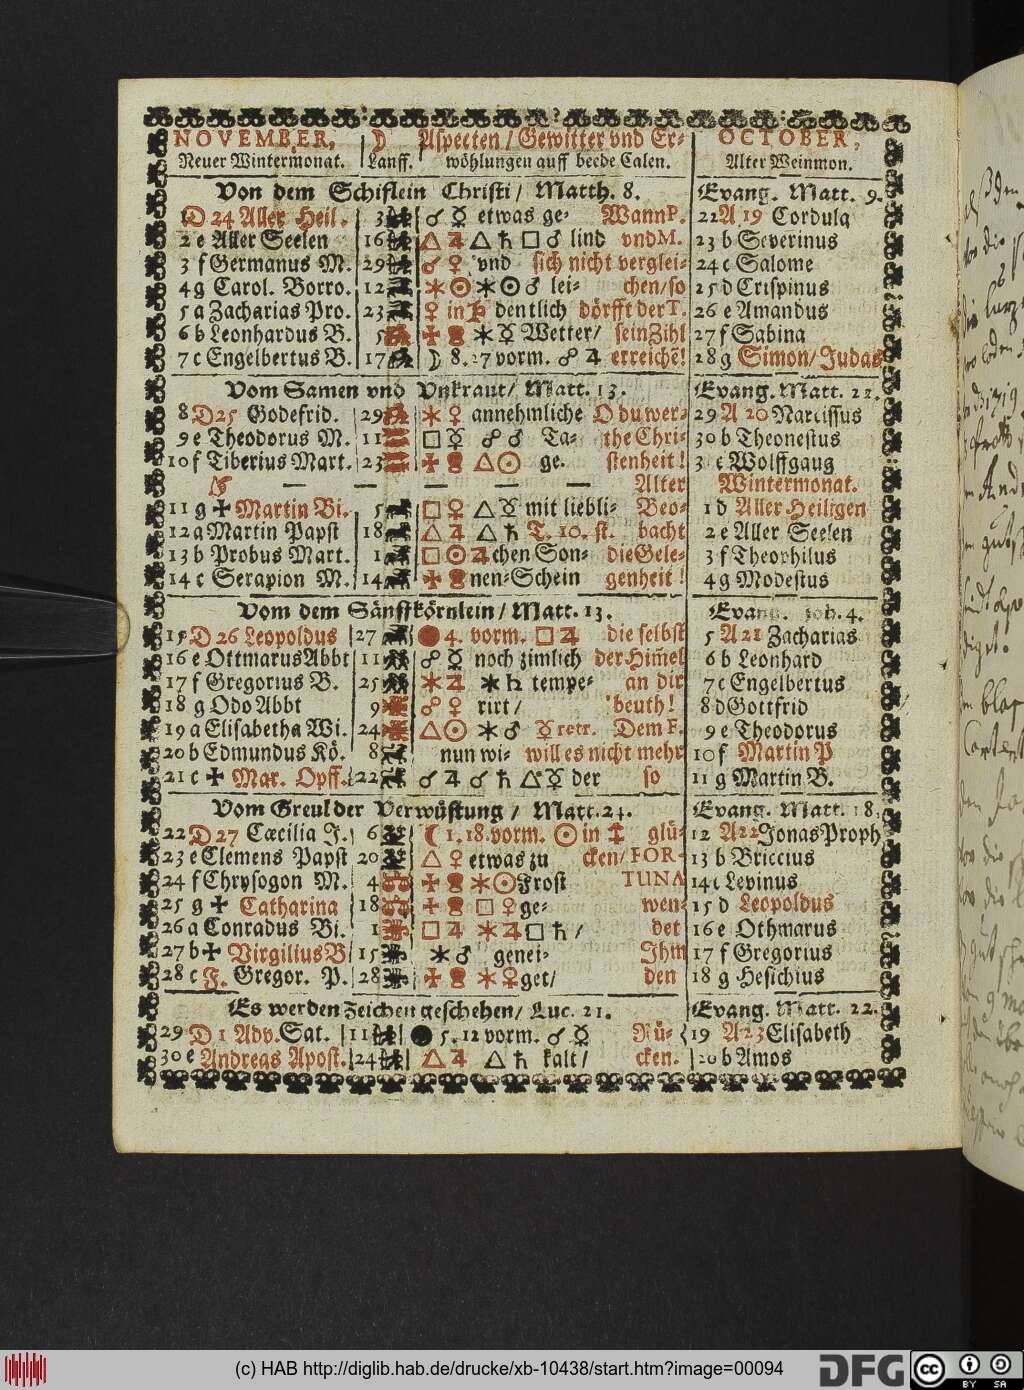 NOVEMBER, ☽ Aſpecten / Gewitter vnd Er- OCTOBER,
Neuer Wintermonat. Lauff. wöhlungen auff beede Calen. Alter Weinmon.
Von dem Schiflein Chriſti / Matth. 8. Evang. Matt. 9.
1 D 24 Aller Heil. 3 ☌ ☿ etwas ge- Wann P. 22 A 19 Cordula
2 e Aller Seelen 16 △ ♃ △ ♄ □ ♂ lind vnd M. 23 b Severinus
3 f Germanus M. 29 ☌ ♀ vnd ſich nicht verglei- 24 c Salome
4 g Carol. Borro. 12 ✶ ☉ ✶ ☉ ♂ lei- chen / ſo 25 d Criſpinus
5 a Zacharias Pro. 23 ♀ in dentlich dörfft der T. 26 e Amandus
6 b Leonhardus B. 5 ✶ ☿ Wetter / ſein Zihl 27 f Sabina
7 c Engelbertus B. 17 ☽ 8. 27 vorm. ☍ ♃ erreichẽ! 28 g Simon / Judas
Vom Samen vnd Vnkraut / Matt. 13. Evang. Matt. 22.
8 D 25 Godefrid. 29 ✶ ♀ annehmliche O du wer- 29 A 20 Narciſſus
9 e Theodorus M. 11 □ ☿ ☍ ♂ Ta- the Chri- 30 b Theoneſtus
10 f Tiberius Mart. 23 △ ☉ ge. ſtenheit! 31 c Wolffgaug
Alter Wintermonat.
11 g ✠ Martin Bi. 5 □ ♀ △ ☿ mit liebli- Beo- 1 d Aller Heiligen
12 a Martin Papſt 18 △ ♃ △ ♄ T. 10. ſt. bacht 2 e Aller Seelen
13 b Probus Mart. 1 □ ☉ ♃ chen Son- die Gele- 3 f Theophilus
14 c Serapion M. 14 nen-Schein genheit! 4 g Modeſtus
Vom dem Sänffkörnlein / Matt. 13. Evang. Joh. 4.
15 D 26 Leopoldus 27 ● 4. vorm. □ ♃ die ſelbſt 5 A 21 Zacharias
16 e Ottmarus Abbt 11 ☍ ☿ noch zimlich der Him̃el 6 b Leonhard
17 f Gregorius B. 25 ✶ ♃ ✶ ♄ tempe- an dir 7 c Engelbertus
18 g Odo Abbt 9 ☍ ♀ rirt / beuth! 8 d Gottfrid
19 a Eliſabetha Wi. 24 △ ☉ ✶ ♂ ☿ retr. Dem F. 9 e Theodorus
20 b Edmundus Kö. 8 nun wi- will es nicht mehr 10 f Martin P
21 c ✠ Mar. Opff. 22 ☌ ♃ ☌ ♄ △ ☿ der ſo 11 g Martin B.
Vom Greul der Verwüſtung / Matt. 24. Evang. Matt. 18.
22 D 27 Cæcilia J. 6 ☾ 1. 18. vorm. ☉ in glü- 12 A 22 Jonas Proph
23 e Clemens Papſt 20 △ ♀ etwas zu cken / FOR- 13 b Briccius
24 f Chryſogon M. 4 ✶ ☉ Froſt TUNA 14 c Levinus
25 g ✠ Catharina 18 □ ♀ ge- wen- 15 d Leopoldus
26 a Conradus Bi. 1 □ ♃ ✶ ♃ □ ♄ / det 16 e Othmarus
27 b ✠ Virgilius B 15 ✶ ♂ genei- Jhm 17 f Gregorius
28 c F. Gregor. P. 28 ✶ ♀ get / den 18 g Heſichius
Es werden Zeichen geſchehen / Luc. 21. Evang. Matt. 22.
29 D 1 Adv. Sat. 11 ● 5. 12 vorm. ☌ ☿ Rü- 19 A 23 Eliſabeth
30 e Andreas Apoſt. 24 △ ♃ △ ♄ kalt / cken. 20 b Amos
(c) HAB http://diglib.hab.de/drucke/xb-10438/start.htm?image=00094 DFG cc BY SA